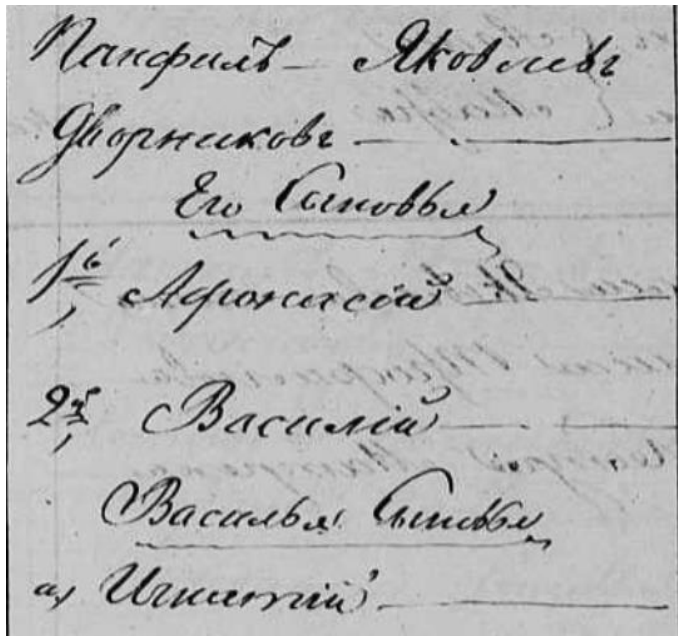 Панфилъ Яковлевъ
Дворниковъ
Его Сыновья
1й Афонасій
2й Василій
Василья Сыновья
а, Игнатій